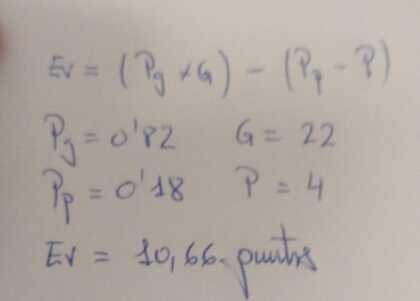 Ev = (Pg × G) - (Pp - P)
Pg = 0'82 G = 22
Pp = 0'18 P = 4
Ev = 10,66 puntos